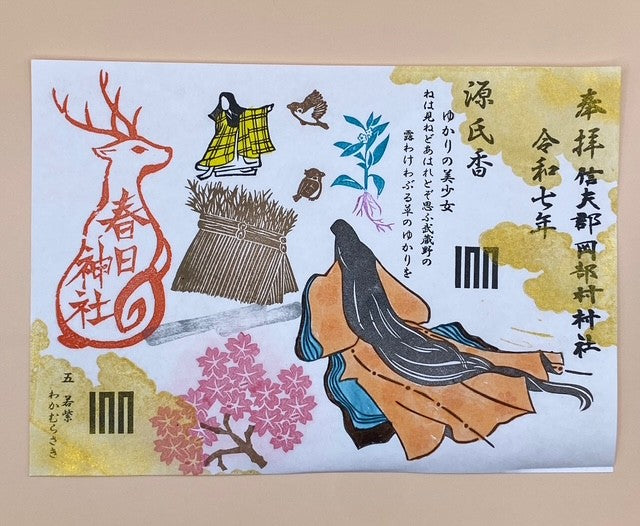 奉拝 信夫郡岡部村村社
令和七年
源氏香
ゆかりの美少女
ねは見ねどあはれとぞ思ふ武蔵野の
露わけわぶる草のゆかりを
春日
神社
五 若紫
わかむらさき